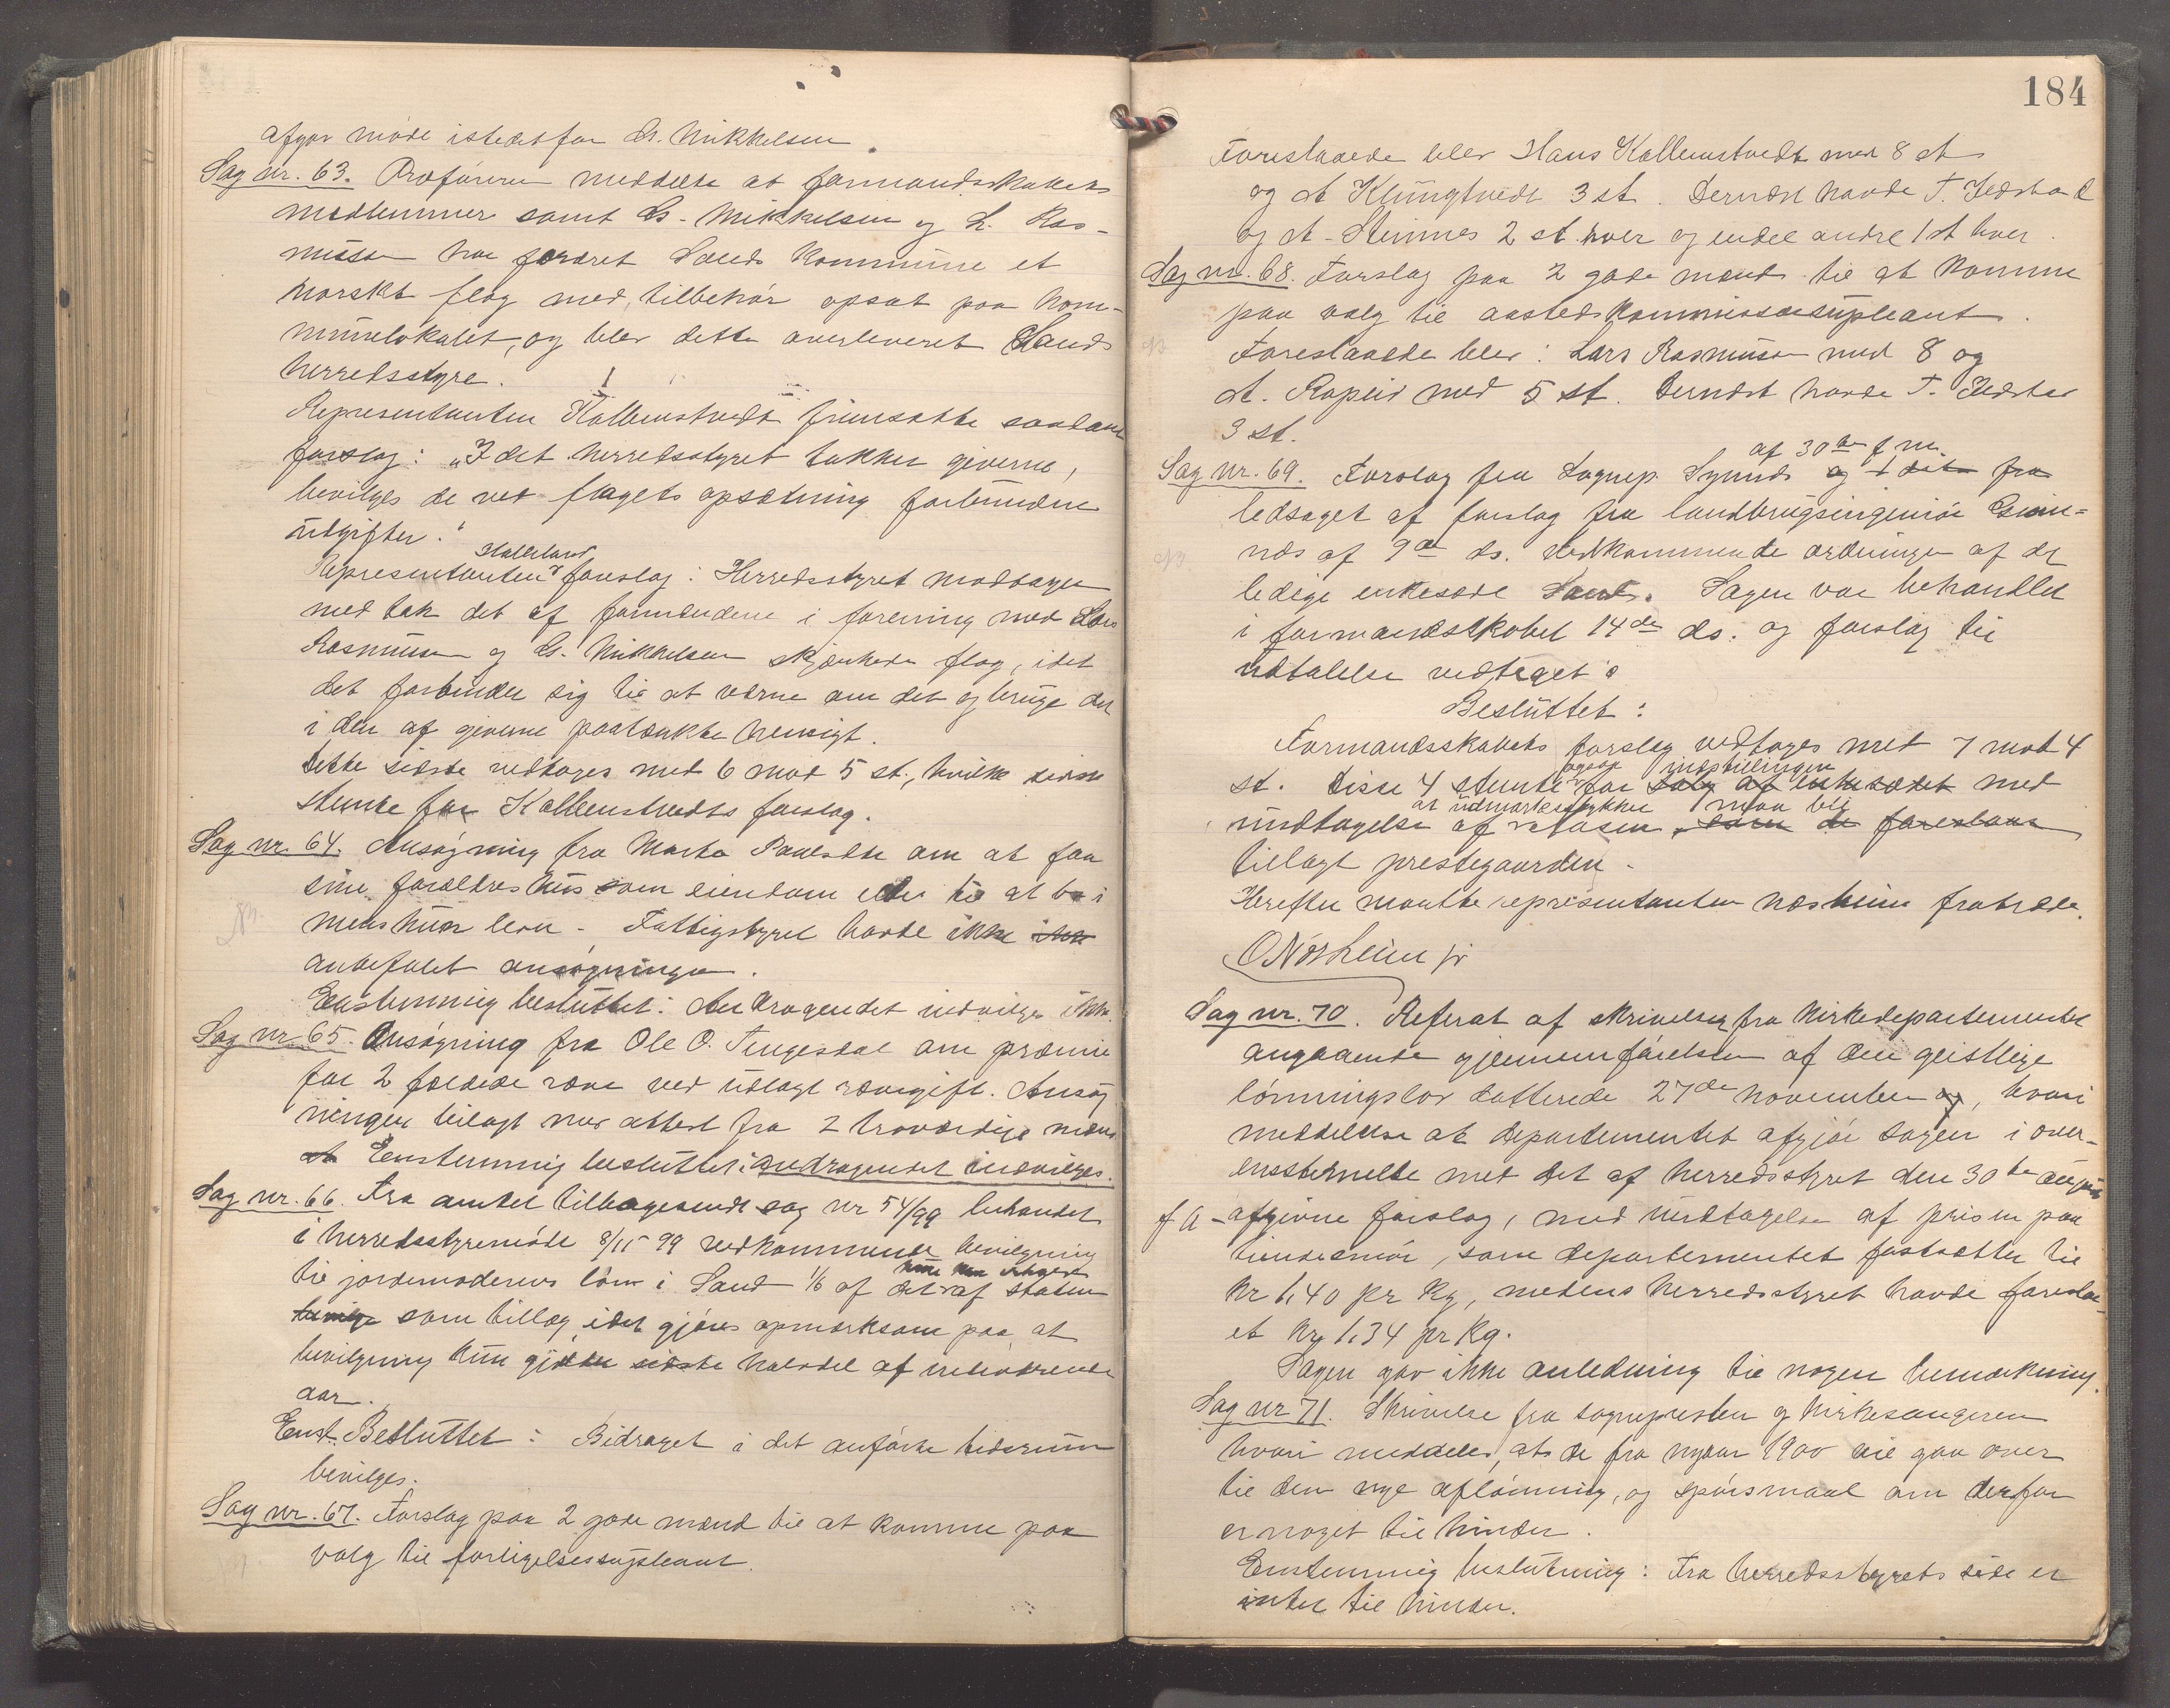 afgav møde istedetfor G. Mikkelsen.
Sag nr. 63. Ordføreren meddelte at formandskabets
medlemmer samt G. Mikkelsen og L. Ras-
mussen har foræret Sands kommune et
norskt flag med tilbehør opsat paa kom-
munelokalet, og blev dette overleveret Sands
herredsstyre.
Representanten Kolbenstvedt fremsatte saadant
forslag: "I det herredsstyret takker giverne,
bevilges de ved flagets opsætning forbundne
udgifter."
Representanten forslag: Herredsstyret modtager
med tak det af formændene i forening med Lars
Rasmussen og G. Mikkelsen skjænkede flag, idet
det forbinder sig til at værne om det og bruge det
i den af giverne paatænkte hensigt.
Dette sidste vedtoges med 6 mod 5 st., hvilke sidste
stemte for Kolbenstvedts forslag.
Sag nr. 64. Ansøgning fra Marta Paulsdtr om at faa
sine forældres hus som eiendom eller til at bo i
mens hun lever. Fattigstyret havde ikke
anbefalet ansøgningen.
Enstemmig besluttet: Andragendet indvilges ikke.
Sag nr 65. Ansøgning fra Ole O. Tengesdal om præmie
for 2 fældede ræve ved udlagt rævegift. Ansøg
ningen bilagt med attest fra 2 troværdige mænd
Enstemmig besluttet: andragendet indvilges.
Sag nr. 66. Fra amtet tilbagesendt sag nr 54/99 behandlet
i herredsstyremøde 8/11 99 vedkommende bevilgning
til jordemoderens løn i Sand 1/6 af det af staten
som tillæg, idet gjøres opmærksom paa, at
bevilgning kun gjælder sidste halvdel af indeværende
aar.
Enst. Besluttet: Bidraget i det anførte tidsrum
bevilges.
Sag nr. 67. Forslag paa 2 gode mænd til at komme paa
valg til forligelsessupleant.
184
Foreslaaede blev Hans Kolbenstvedt med 8 st
og A Klungtvedt 3 st. Dernæst havde T. Hedstad
og A. Steinnes 2 st. hver og endel andre 1 st hver.
Sag nr. 68. Forslag paa 2 gode mænd til at komme
paa valg til aastedskommissærsupleant.
Foreslaaede blev: Lars Rasmussen med 8 og
A. Rapeid med 5 st. Dernæst havde T. Hedstad
3 st.
af 30te f. m.
Sag nr. 69. Forslag fra Sognep. og fra
ledsaget af forslag fra landbrugsingeniør
af 9de ds. vedkommende ordningen af det
ledige enkesæde Sand. Sagen var behandlet
i formandskabet 14de ds. og forslag til
udtalelse vedtaget.
Besluttet:
Formandsskabets forslag vedtoges med 7 mod 4
ogsaa indstillingen
st. Disse 4 stemte for salg af enkesædet med
at udmarksstykket maa bli
undtagelse af som de foreslaar
tillagt prestegaarden.
Herefter maatte representanten Næsheim fratræde.
O Næsheim jr
Sag nr. 70. Referat af skrivelse fra kirkedepartementet
angaaende gjennemførelsen af den geistlige
lønningslov datterede 27de november, hvori
meddeles at departementet afgjør sagen i over-
ensstemmelse med det af herredsstyret den 30te august
f A - afgivne forslag, med undtagelse af prisen paa
tiendesmør, som departementet fastsætter til
kr 1,40 pr kg, medens herredsstyret havde foreslaa-
et kr 1,34 pr kg.
Sagen gav ikke anledning til nogen bemærkning.
Sag nr 71. Skrivelse fra sognepresten og kirkesangeren
hvori meddeles, at de fra nytaar 1900 vil gaa over
til den nye aflønning, og spørsmaal om derfor
er noget til hinder.
Enstemmig beslutning: Fra herredsstyrets side er
intet til hinder.